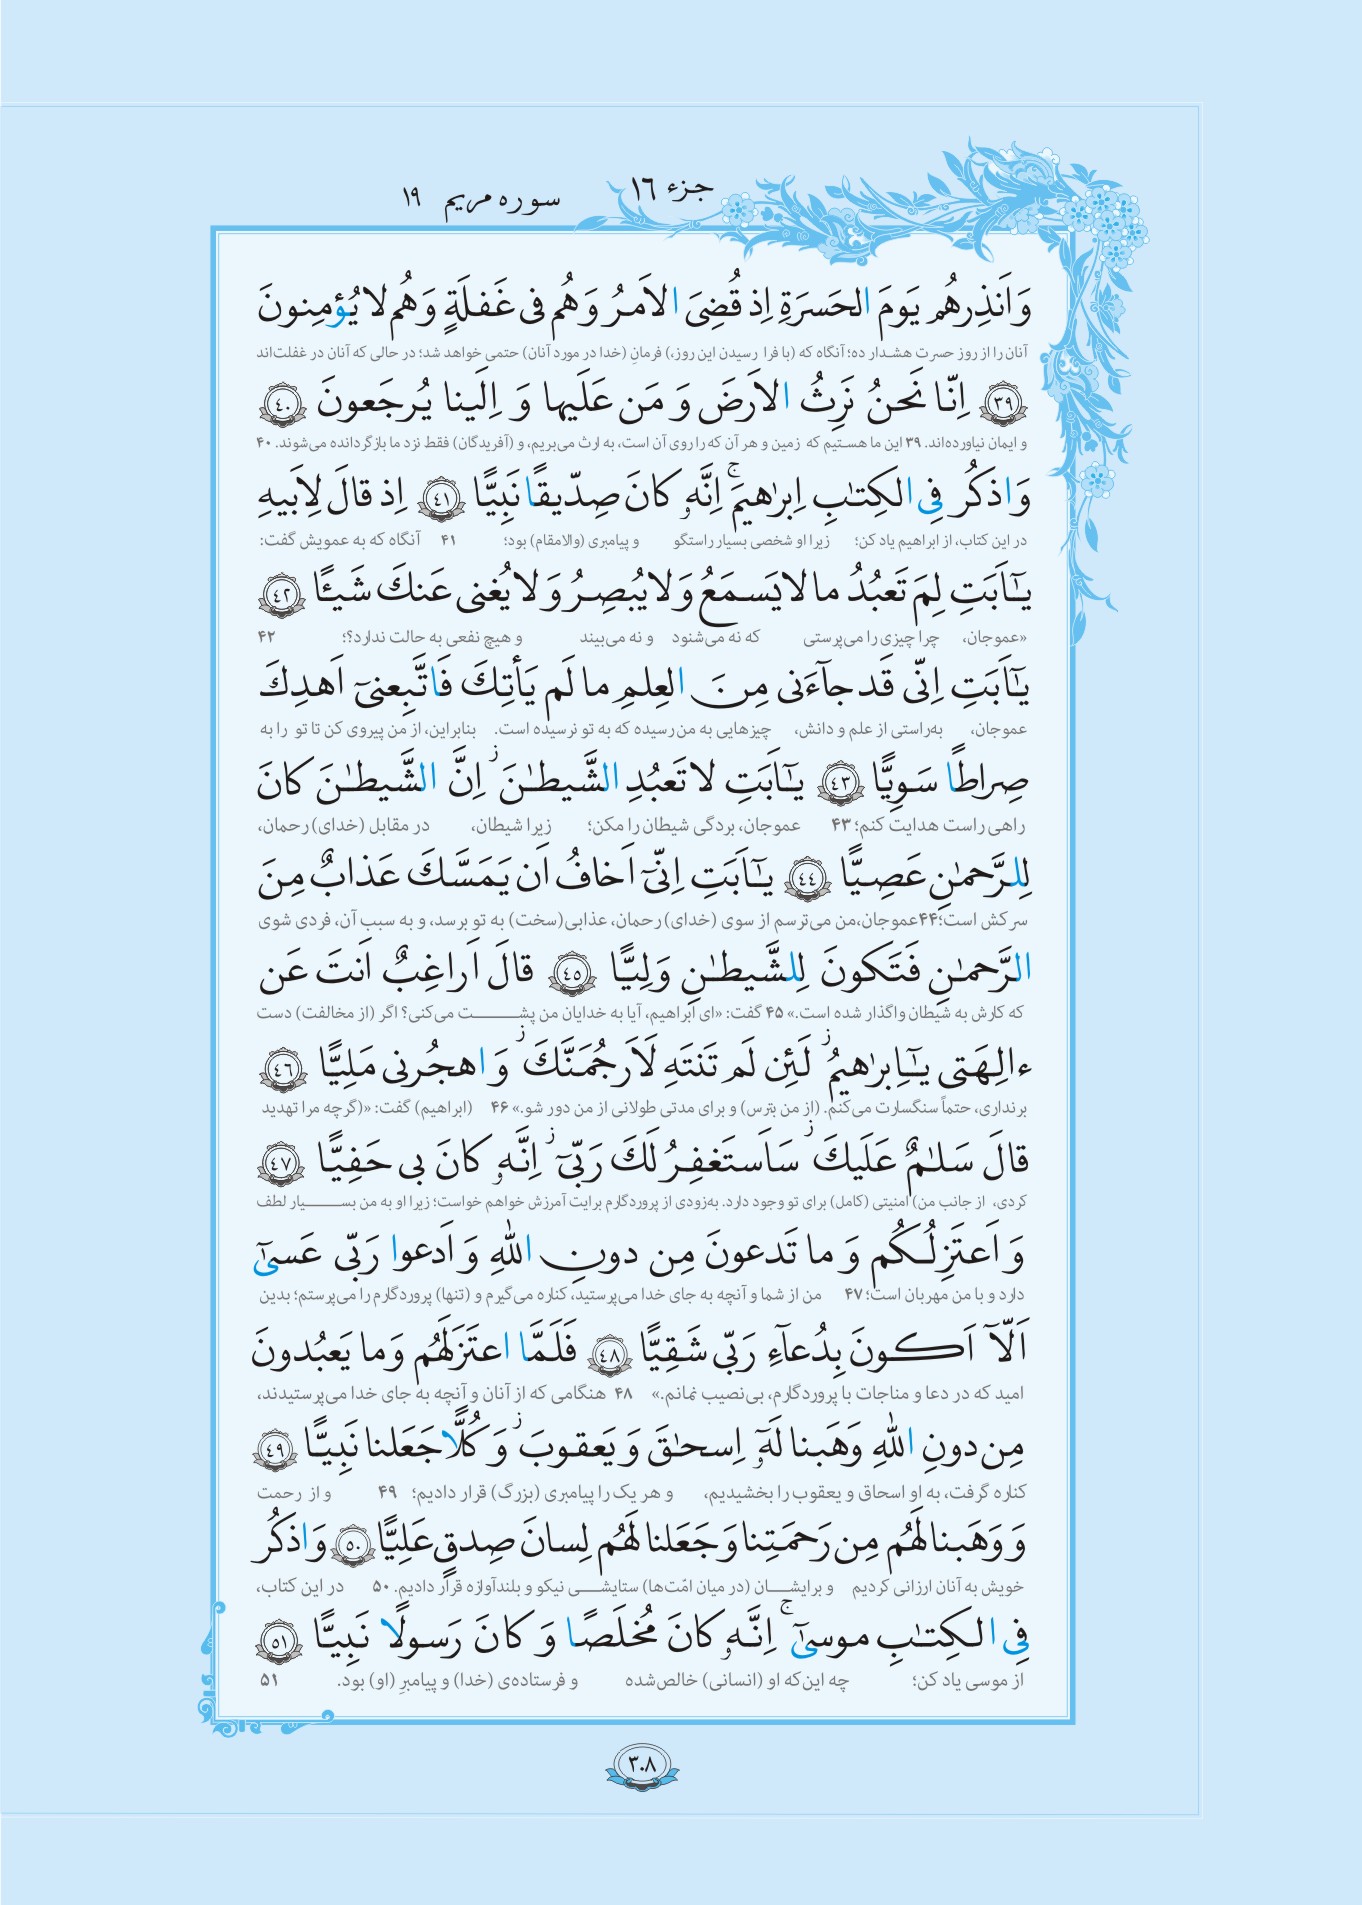 جزء ١٦
سوره مریم ١٩
وَ اَنذِرهُم یَومَ الحَسرَةِ اِذ قُضِیَ الاَمرُ وَ هُم فی غَفلَةٍ وَ هُم لا یُؤمِنونَ
آنان را از روز حسرت هشدار ده؛ آنگاه که (با فرا رسیدن این روز،) فرمانِ (خدا در مورد آنان) حتمی خواهد شد؛ در حالی که آنان در غفلت‌اند
﴿٣٩﴾ اِنّا نَحنُ نَرِثُ الاَرضَ وَ مَن عَلَیها وَ اِلَینا یُرجَعونَ ﴿٤٠﴾
و ایمان نیاورده‌اند. ۳۹ این ما هستیم که زمین و هر آن که را روی آن است، به ارث می‌بریم، و (آفریدگان) فقط نزد ما بازگردانده می‌شوند. ۴۰
وَ اذکُر فِی الکِتٰبِ اِبرٰهیمَ ۚ اِنَّهُ کانَ صِدّیقًا نَبِیًّا ﴿٤١﴾ اِذ قالَ لِاَبیهِ
در این کتاب، از ابراهیم یاد کن؛ زیرا او شخصی بسیار راستگو و پیامبری (والامقام) بود؛ ۴۱ آنگاه که به عمویش گفت:
یٰٓاَبَتِ لِمَ تَعبُدُ ما لا یَسمَعُ وَ لا یُبصِرُ وَ لا یُغنی عَنکَ شَیـًٔا ﴿٤٢﴾
«عموجان، چرا چیزی را می‌پرستی که نه می‌شنود و نه می‌بیند و هیچ نفعی به حالت ندارد؟؛ ۴۲
یٰٓاَبَتِ اِنّی قَد جآءَنی مِنَ العِلمِ ما لَم یَأتِکَ فَاتَّبِعنیٓ اَهدِکَ
عموجان، به‌راستی از علم و دانش، چیزهایی به من رسیده که به تو نرسیده است. بنابراین، از من پیروی کن تا تو را به
صِراطًا سَوِیًّا ﴿٤٣﴾ یٰٓاَبَتِ لا تَعبُدِ الشَّیطٰنَ ز اِنَّ الشَّیطٰنَ کانَ
راهی راست هدایت کنم؛ ۴۳ عموجان، بردگی شیطان را مکن؛ زیرا شیطان، در مقابل (خدای) رحمان،
لِلرَّحمٰنِ عَصِیًّا ﴿٤٤﴾ یٰٓاَبَتِ اِنّیٓ اَخافُ اَن یَمَسَّکَ عَذابٌ مِنَ
سرکش است؛ ۴۴ عموجان، من می‌ترسم از سوی (خدای) رحمان، عذابی (سخت) به تو برسد، و به سبب آن، فردی شوی
الرَّحمٰنِ فَتَکونَ لِلشَّیطٰنِ وَلِیًّا ﴿٤٥﴾ قالَ اَراغِبٌ اَنتَ عَن
که کارش به شیطان واگذار شده است.» ۴۵ گفت: «ای ابراهیم، آیا به خدایان من پشت می‌کنی؟ اگر (از مخالفت) دست
ءالِهَتی یٰٓاِبرٰهیمُ ز لَئِن لَم تَنتَهِ لَاَرجُمَنَّکَ ز وَ اهجُرنی مَلِیًّا ﴿٤٦﴾
برنداری، حتماً سنگسارت می‌کنم. (از من بترس) و برای مدتی طولانی از من دور شو.» ۴۶ (ابراهیم) گفت: «(گرچه مرا تهدید
قالَ سَلٰمٌ عَلَیکَ ز سَاَستَغفِرُ لَکَ رَبّیٓ ز اِنَّهُ کانَ بی حَفِیًّا ﴿٤٧﴾
کردی، از جانب من) امنیتی (کامل) برای تو وجود دارد. به‌زودی از پروردگارم برایت آمرزش خواهم خواست؛ زیرا او به من بسیار لطف
وَ اَعتَزِلُکُم وَ ما تَدعونَ مِن دونِ اللهِ وَ اَدعوا رَبّی عَسیٰٓ
دارد و با من مهربان است؛ ۴۷ من از شما و آنچه به جای خدا می‌پرستید، کناره می‌گیرم و (تنها) پروردگارم را می‌پرستم؛ بدین
اَلّآ اَکونَ بِدُعآءِ رَبّی شَقِیًّا ﴿٤٨﴾ فَلَمَّا اعتَزَلَهُم وَ ما یَعبُدونَ
امید که در دعا و مناجات با پروردگارم، بی‌نصیب نمانم.» ۴۸ هنگامی که از آنان و آنچه به جای خدا می‌پرستیدند،
مِن دونِ اللهِ وَهَبنا لَهُٓ اِسحٰقَ وَ یَعقوبَ ز وَ کُلًّا جَعَلنا نَبِیًّا ﴿٤٩﴾
کناره گرفت، به او اسحاق و یعقوب را بخشیدیم، و هر یک را پیامبری (بزرگ) قرار دادیم؛ ۴۹ و از رحمت
وَ وَهَبنا لَهُم مِن رَحمَتِنا وَ جَعَلنا لَهُم لِسانَ صِدقٍ عَلِیًّا ﴿٥٠﴾ وَ اذکُر
خویش به آنان ارزانی کردیم و برایشان (در میان امّت‌ها) ستایشی نیکو و بلندآوازه قرار دادیم. ۵۰ در این کتاب،
فِی الکِتٰبِ موسیٰٓ ۚ اِنَّهُ کانَ مُخلَصًا وَ کانَ رَسولًا نَبِیًّا ﴿٥١﴾
از موسی یاد کن؛ چه این‌که او (انسانی) خالص‌شده و فرستاده‌ی (خدا) و پیامبرِ (او) بود. ۵۱
٣٠٨